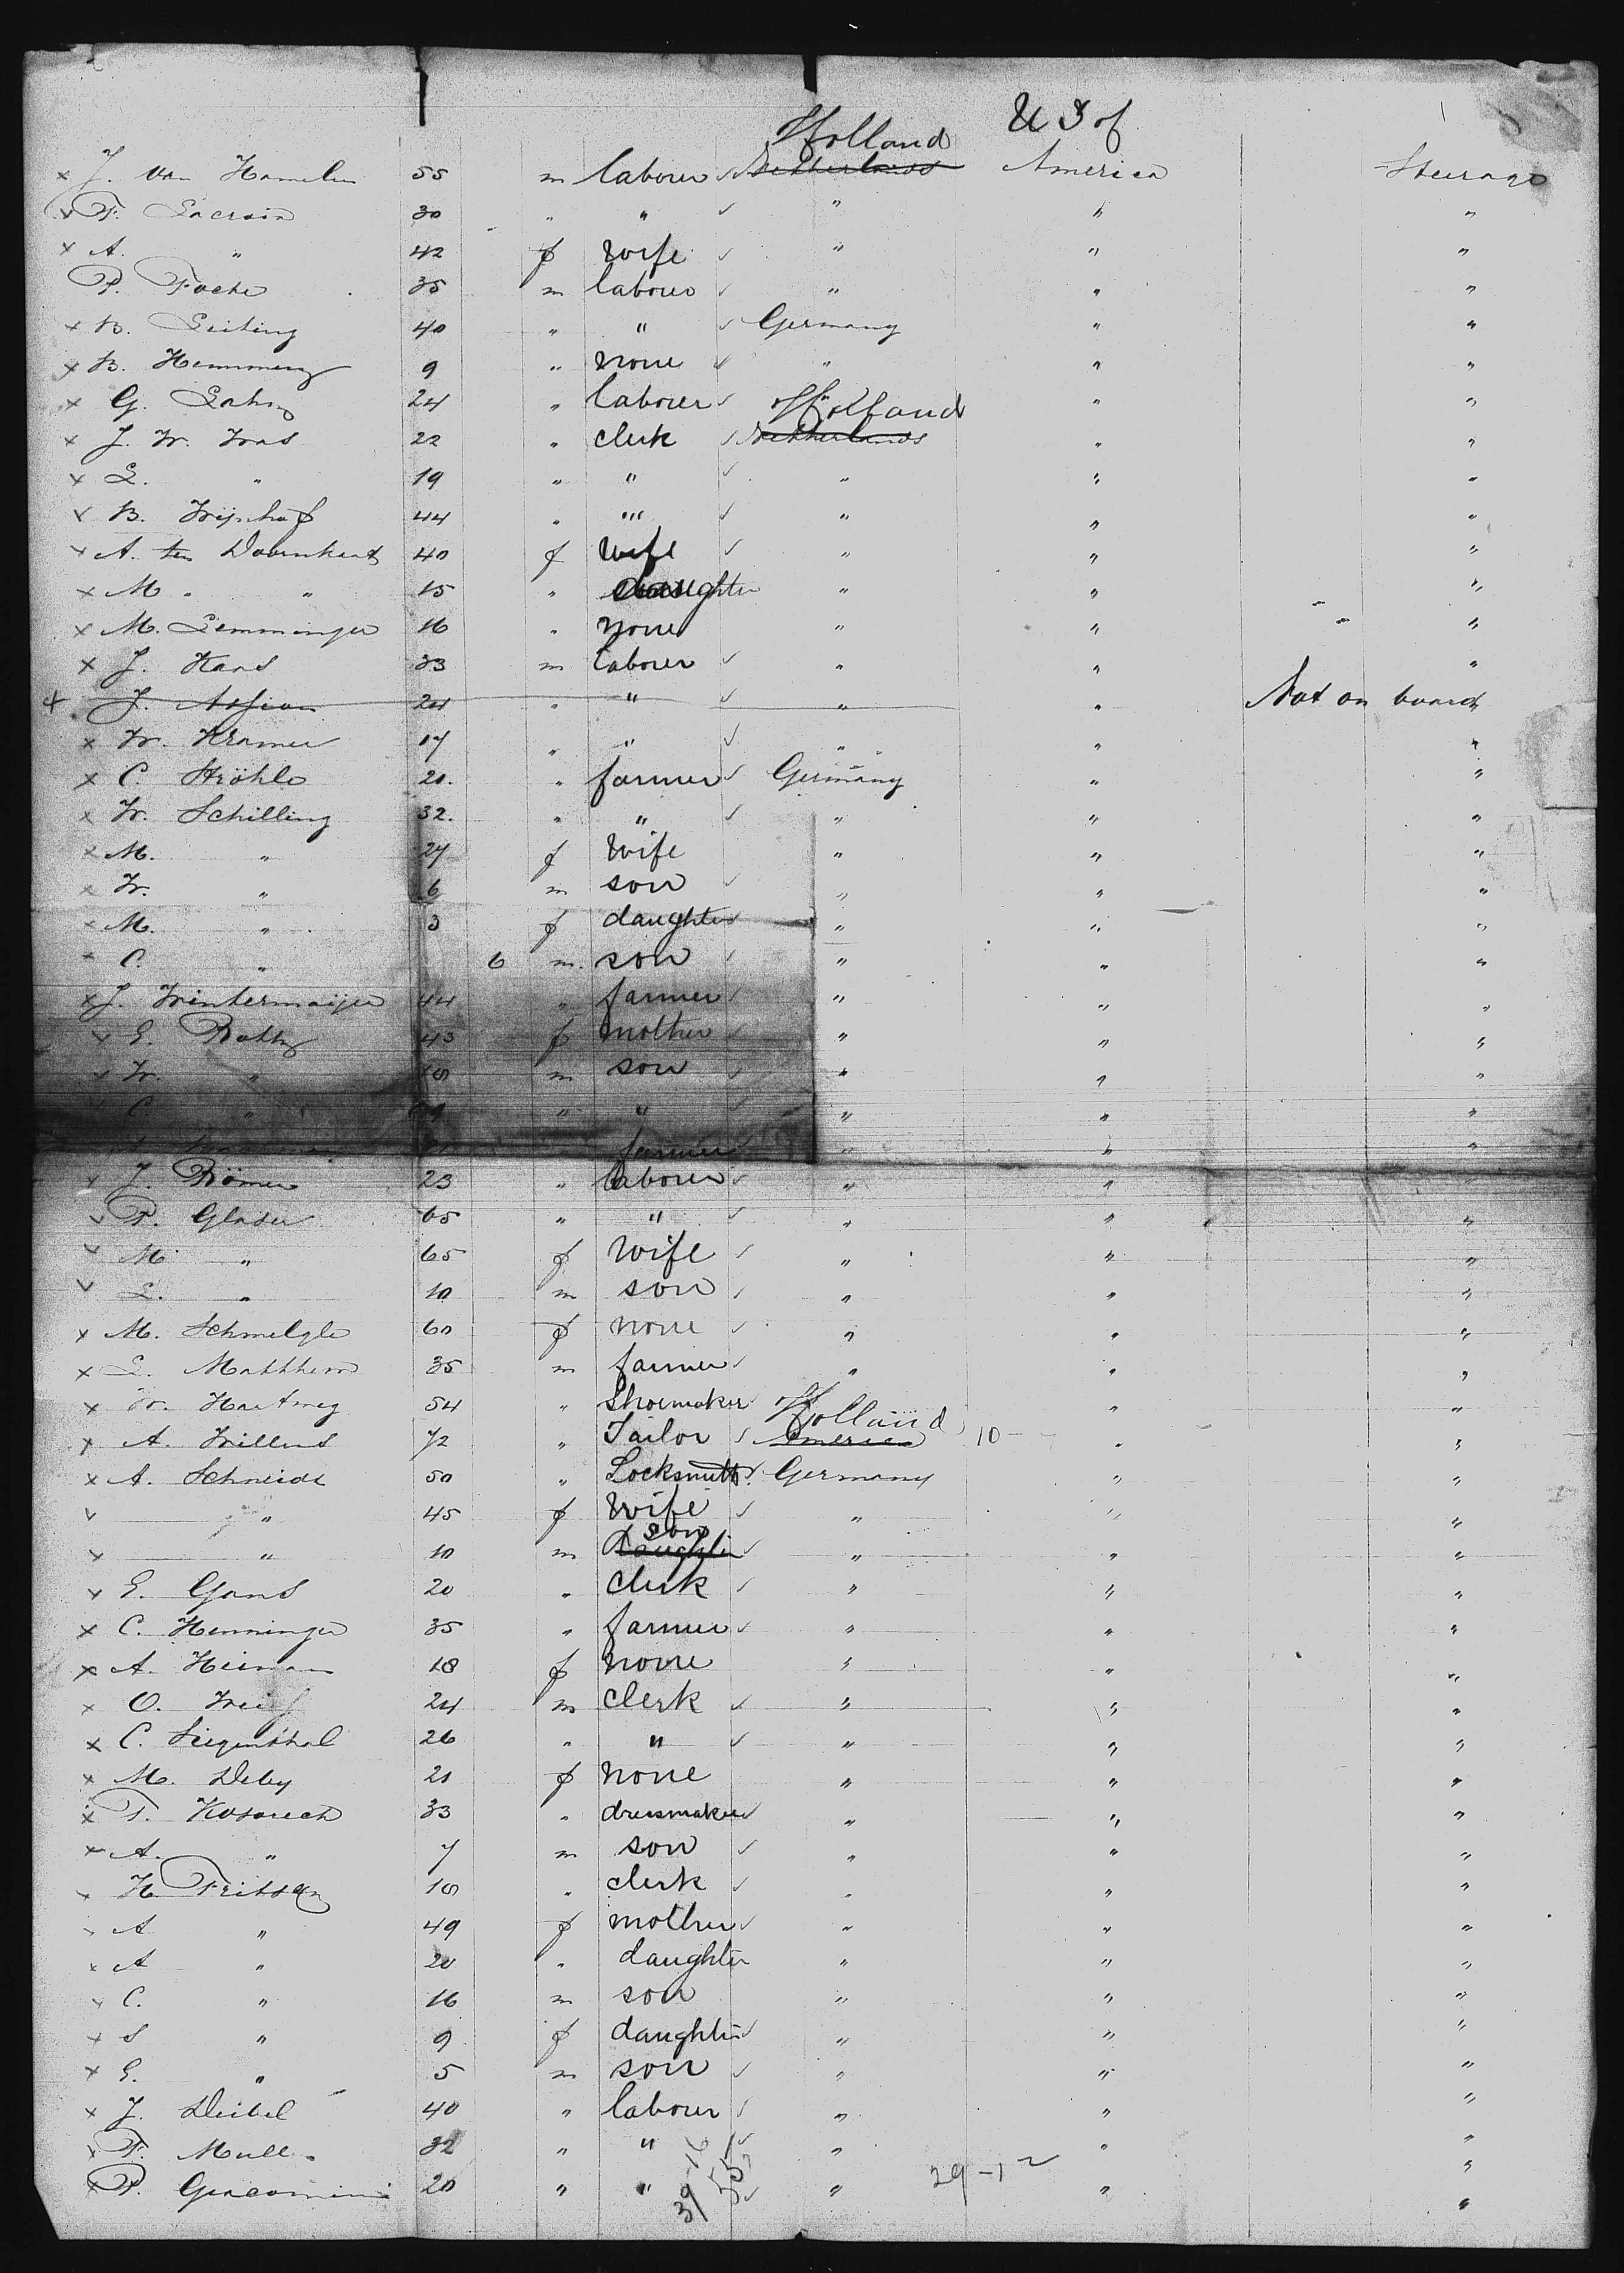 U S of
Holland
x J. van Hamelen 55 m laborer ✓ Netherlands America Steerage
x F. Lacroix 30 " " ✓ " " "
x A. " 42 f wife ✓ " " "
P. Foche 35 m laborer ✓ " " "
x B. Leiting 40 " " ✓ Germany " "
x B. Hemmerz 9 " none ✓ " " "
x G. 24 " laborer ✓ " " "
Holland
x J. W. Was 22 " clerk ✓ Netherlands " "
x L. " 19 " " ✓ " " "
x B. Wijnhoff 44 " " ✓ " " "
x A. ten Doornkaat 40 f wife ✓ " " "
x M. " " 15 " daughter " " "
x M. Lemminger 16 " none " " "
x J. Hans 33 m laborer ✓ " " "
x J. 24 " " ✓ " " Not on board
x W. Kramer 17 " " ✓ " " "
x C. Ströhle 20. " farmer ✓ Germany " "
x W. Schilling 32. " " ✓ " " "
x M. " 27 f wife " " "
x W. " 6 m son ✓ " " "
x M. " 3 f daughter ✓ " " "
x C. " 6 m. son ✓ " " "
x J. Wintermaijer 44 " farmer ✓ " " "
x E. 43 f mother ✓ " " "
x W. " m son ✓ " " "
C " " " ✓ " " "
" farmer ✓ " " "
x J. Römer 23 " laborer ✓ " " "
x P. Glaser 65 " " ✓ " " "
x M " 65 f wife ✓ " " "
x L. " 10 m son ✓ " " "
x M. Schmelzle 60 f none ✓ " " "
x L. Matthern 35 m farmer ✓ " " "
x W. Hartweg 54 " Shoemaker " "
Holland
x A. Willens 72 " Tailor ✓ America 10 — " "
x A. Schneider 50 " Locksmith ✓ Germany " "
x " 45 f wife ✓ " " "
son
x " 10 m Daughter ✓ " " "
x E. Gans 20 " clerk ✓ " " "
x C. Henninger 35 " farmer ✓ " " "
x A. Heiman 18 f none " " "
x O. Weis 24 m clerk ✓ " " "
x C. Siegenthal 26 " " ✓ " " "
x M. Deby 21 f none " " "
x F. Kosareck 33 " dressmaker ✓ " " "
x A. " 7 m son ✓ " " "
x H. Fritsch 18 " clerk ✓ " " "
x A " 49 f mother ✓ " " "
x A " 20 " daughter " " "
x C. " 16 m son " " "
x S " 9 f daughter ✓ " " "
x E. " 5 m son ✓ " " "
x J. Deibel 40 " laborer ✓ " " "
x F. Muller 32 " " ✓ " " "
x P. Giacomini 20 " " ✓ " " "
39-16
55
29-12